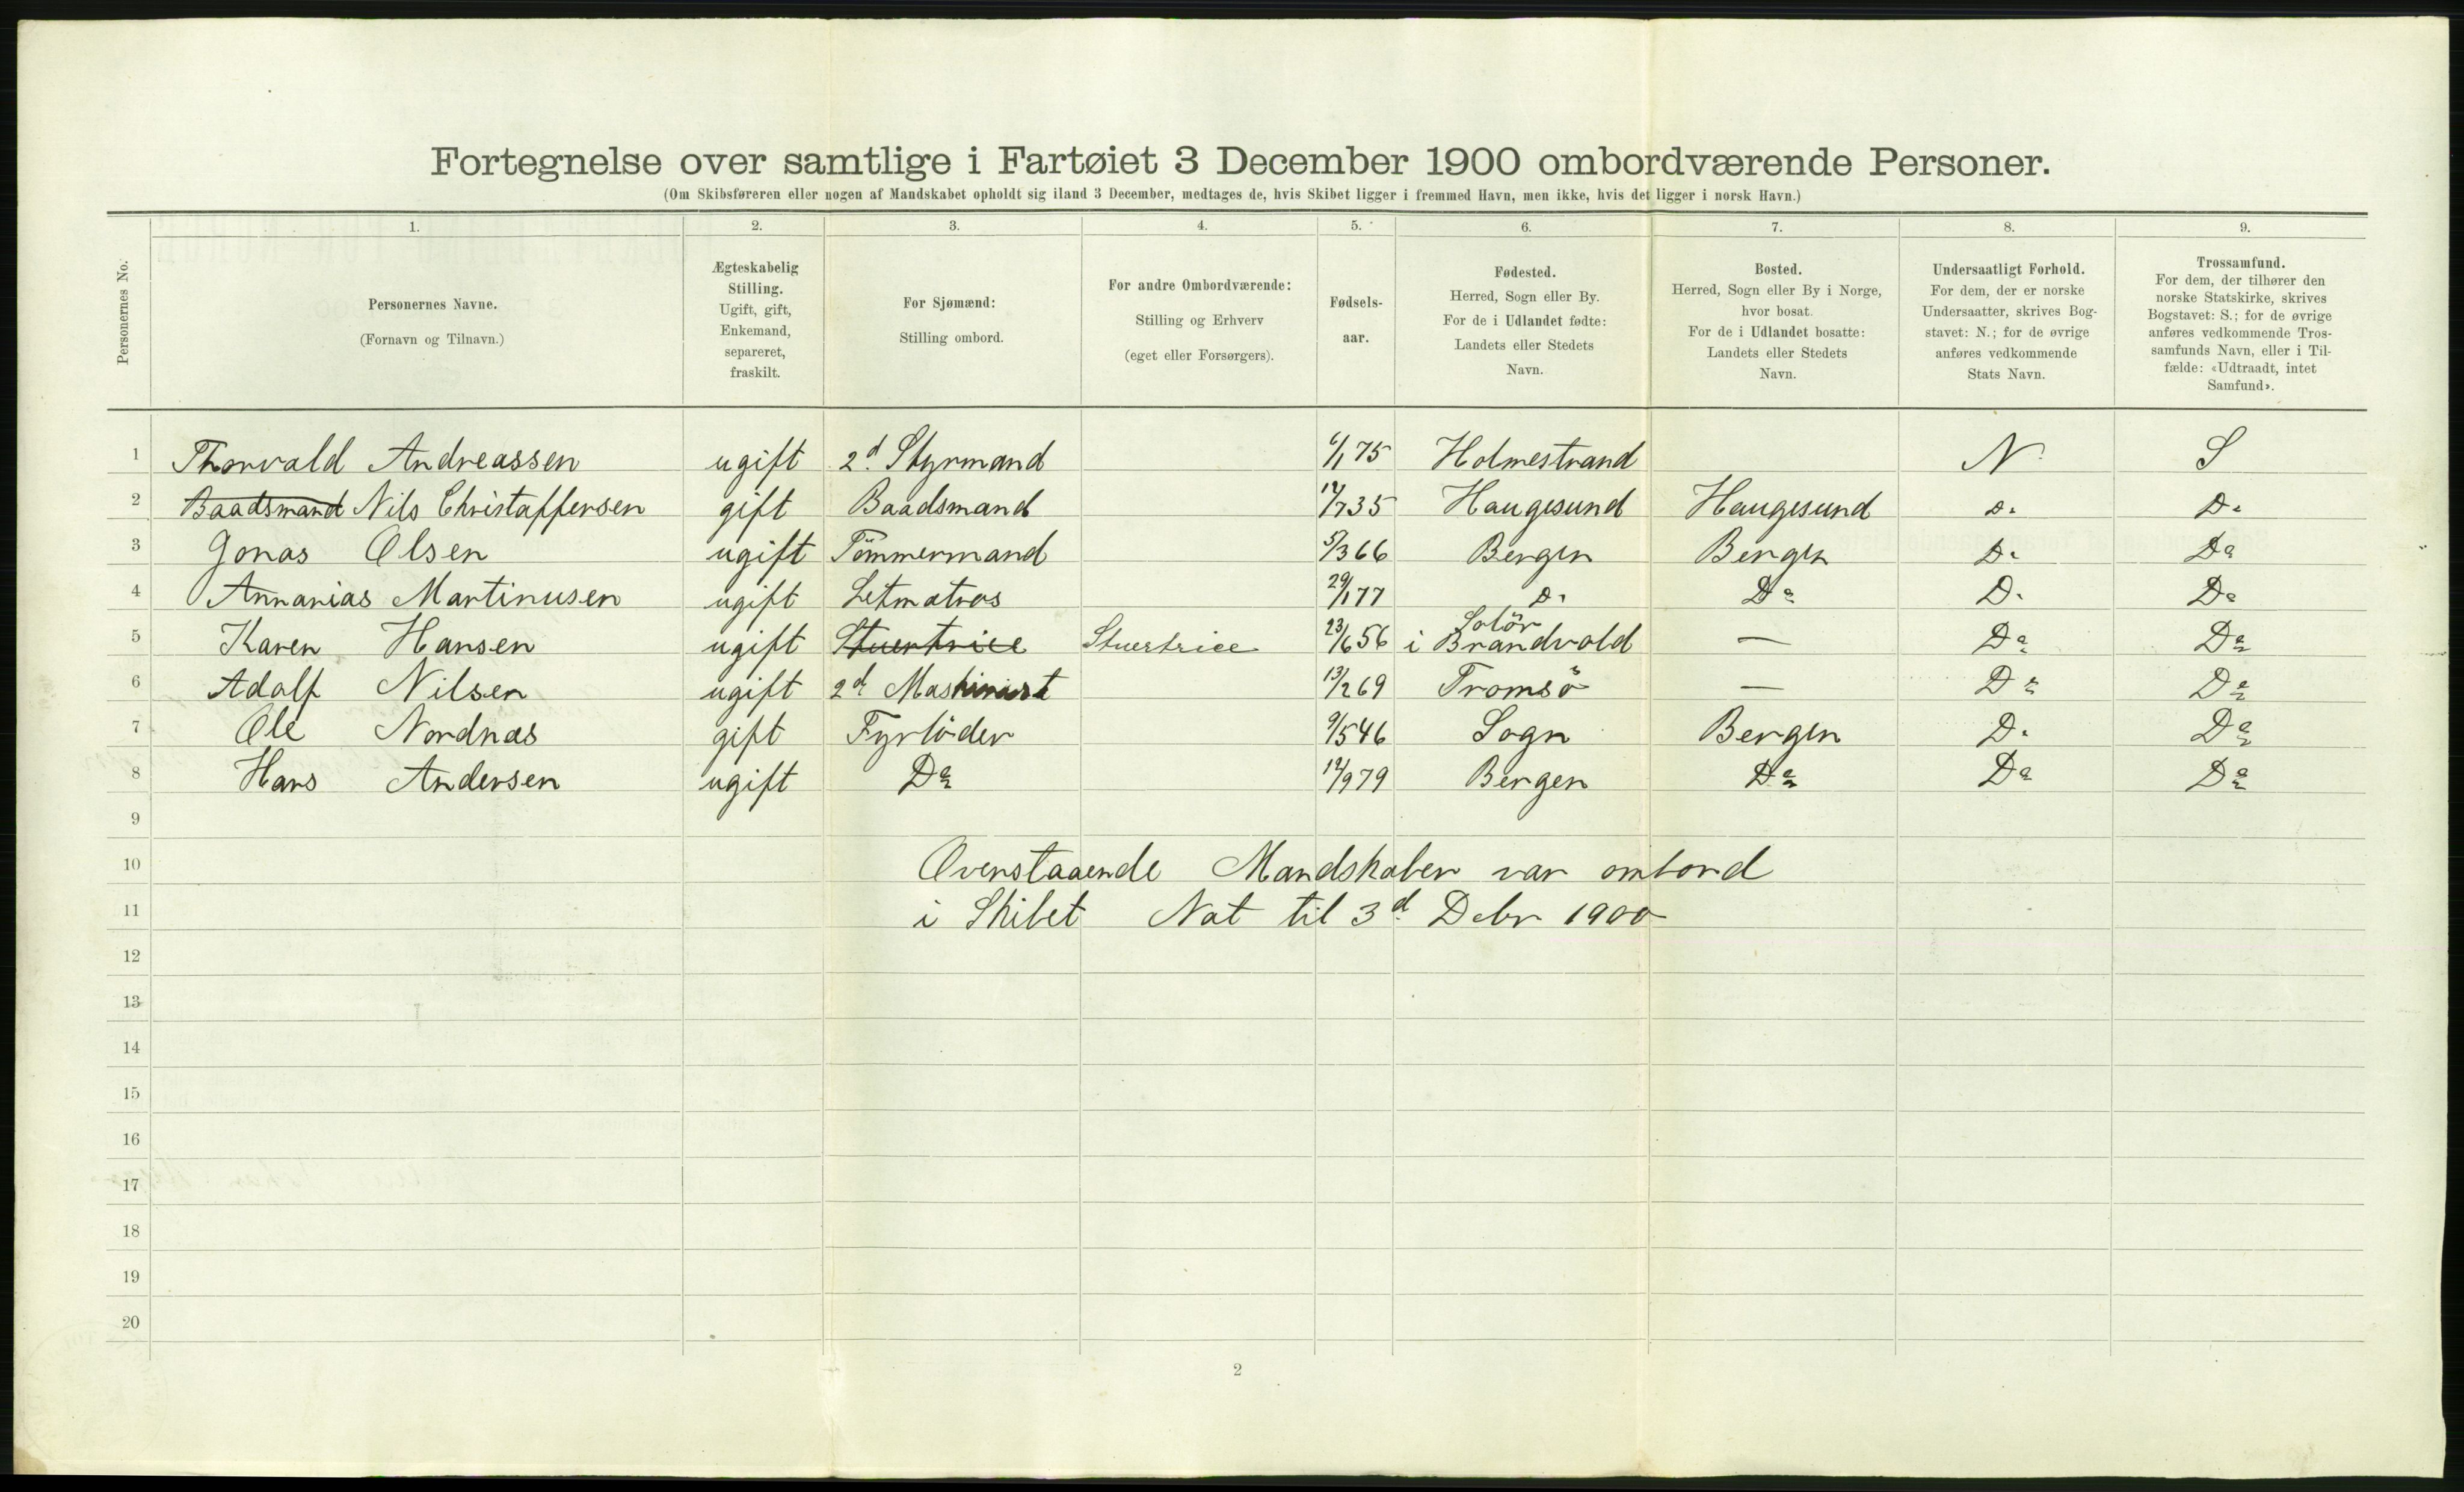 Fortegnelse over samtlige i Fartøiet 3 December 1900 ombordværende Personer.
(Om Skibsføreren eller nogen af Mandskabet opholdt sig iland 3 December, medtages de, hvis Skibet ligger i fremmed Havn, men ikke, hvis det ligger i norsk Havn.)
Personernes No.
1. 2. 3. 4. 5. 6. 7. 8. 9.
Personernes Navne.
(Fornavn og Tilnavn.)
Ægteskabelig
Stilling.
Ugift, gift,
Enkemand,
separeret,
fraskilt.
For Sjømænd:
Stilling ombord.
For andre Ombordværende:
Stilling og Erhverv
(eget eller Forsørgers).
Fødsels-
aar.
Fødested.
Herred, Sogn eller By.
For de i Udlandet fødte:
Landets eller Stedets
Navn.
Bosted.
Herred, Sogn eller By i Norge,
hvor bosat.
For de i Udlandet bosatte:
Landets eller Stedets
Navn.
Undersaatligt Forhold.
For dem, der er norske
Undersaatter, skrives Bog-
stavet: N.; for de øvrige
anføres vedkommende
Stats Navn.
Trossamfund.
For dem, der tilhører den
norske Statskirke, skrives
Bogstavet: S.; for de øvrige
anføres vedkommende Tros-
samfunds Navn, eller i Til-
fælde: «Udtraadt, intet
Samfund».
1 Thorvald Andreassen ugift 2d Styrmand 6/1 75 Holmestrand N S
2 Baadsmand Nils Christaffersen gift Baadsmand 12/7 35 Haugesund Haugesund Do Do
3 Jonas Olsen ugift Tömmermand 5/3 66 Bergen Bergen Do Do
4 Annanias Martinusen ugift Letmatros 29/1 77 Do Do Do Do
5 Karen Hansen ugift Stuertrice Stuertrice 23/6 56 i Solör Brandvold — Do Do
6 Adolf Nilsen ugift 2d Maskinist 13/2 69 Tromsö — Do Do
7 Ole Nordnas gift Fyrböder 9/5 46 Sogn Bergen Do Do
8 Hans Andersen ugift Do 12/9 79 Bergen Do Do Do
9
10 Overstaaende Mandskaber var ombord
11 i Skibet Nat til 3d Debr 1900
12
13
14
15
16
17
18
19
20
2